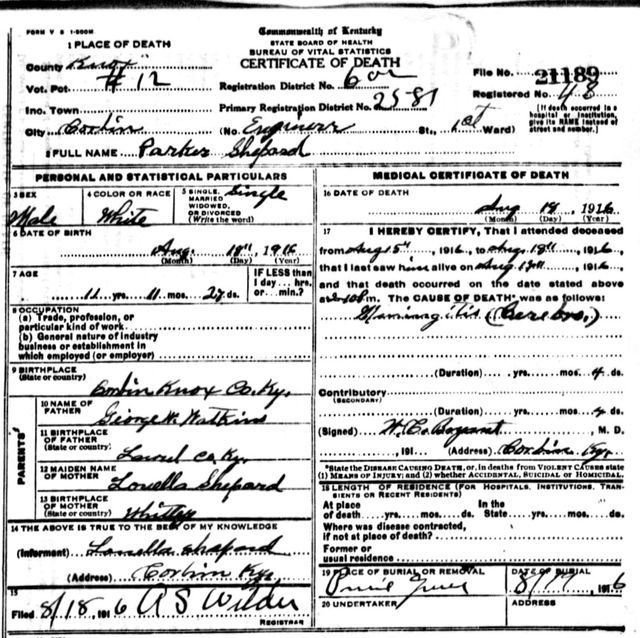 FORM V S 1-500M
Commonwealth of Kentucky
STATE BOARD OF HEALTH
BUREAU OF VITAL STATISTICS
CERTIFICATE OF DEATH
1 PLACE OF DEATH
County
Vot. Pct. # 12
Inc. Town
City Corbin
Registration District No. 602
Primary Registration District No. 2581
(No. Engineer St., 1st Ward)
File No. 21189
Registered No. 48
[If death occurred in a hospital or institution, give its NAME instead of street and number.]
2 FULL NAME Parker Shepard
PERSONAL AND STATISTICAL PARTICULARS
3 SEX
Male
4 COLOR OR RACE
White
5 SINGLE, MARRIED, WIDOWED, OR DIVORCED (Write the word)
Single
6 DATE OF BIRTH
Aug. 18", 1916
(Month) (Day) (Year)
7 AGE
11 yrs. 11 mos. 27 ds.
IF LESS than 1 day... hrs. or... min.?
8 OCCUPATION
(a) Trade, profession, or particular kind of work
(b) General nature of industry business or establishment in which employed (or employer)
9 BIRTHPLACE
(State or country)
Corbin Knox Co. Ky.
PARENTS
10 NAME OF FATHER
George W. Watkins
11 BIRTHPLACE OF FATHER
(State or country)
Laurel Co Ky.
12 MAIDEN NAME OF MOTHER
Louella Shepard
13 BIRTHPLACE OF MOTHER
(State or country)
Whitley
14 THE ABOVE IS TRUE TO THE BEST OF MY KNOWLEDGE
(Informant) Louella Shepard
(Address) Corbin Ky.
15
Filed 8/18, 1916 A S Wilder
REGISTRAR
MEDICAL CERTIFICATE OF DEATH
16 DATE OF DEATH
Aug 18, 1916
(Month) (Day) (Year)
17 I HEREBY CERTIFY, That I attended deceased
from Aug 15", 1916, to Aug. 18", 1916,
that I last saw him alive on Aug 17", 1916,
and that death occurred on the date stated above
at m. The CAUSE OF DEATH* was as follows:
(Cerebro.)
(Duration) yrs. mos. ds.
Contributory
(SECONDARY)
(Duration) yrs. mos. ds.
(Signed) W. C. M. D.
, 191 (Address) Corbin Ky.
*State the DISEASE CAUSING DEATH, or, in deaths from VIOLENT CAUSES state (1) MEANS OF INJURY; and (2) whether ACCIDENTAL, SUICIDAL or HOMICIDAL.
18 LENGTH OF RESIDENCE (FOR HOSPITALS, INSTITUTIONS, TRANSIENTS OR RECENT RESIDENTS)
At place of death yrs. mos. ds. In the State yrs. mos. ds.
Where was disease contracted, if not at place of death?
Former or usual residence
19 PLACE OF BURIAL OR REMOVAL
DATE OF BURIAL
8/19, 1916
20 UNDERTAKER
ADDRESS